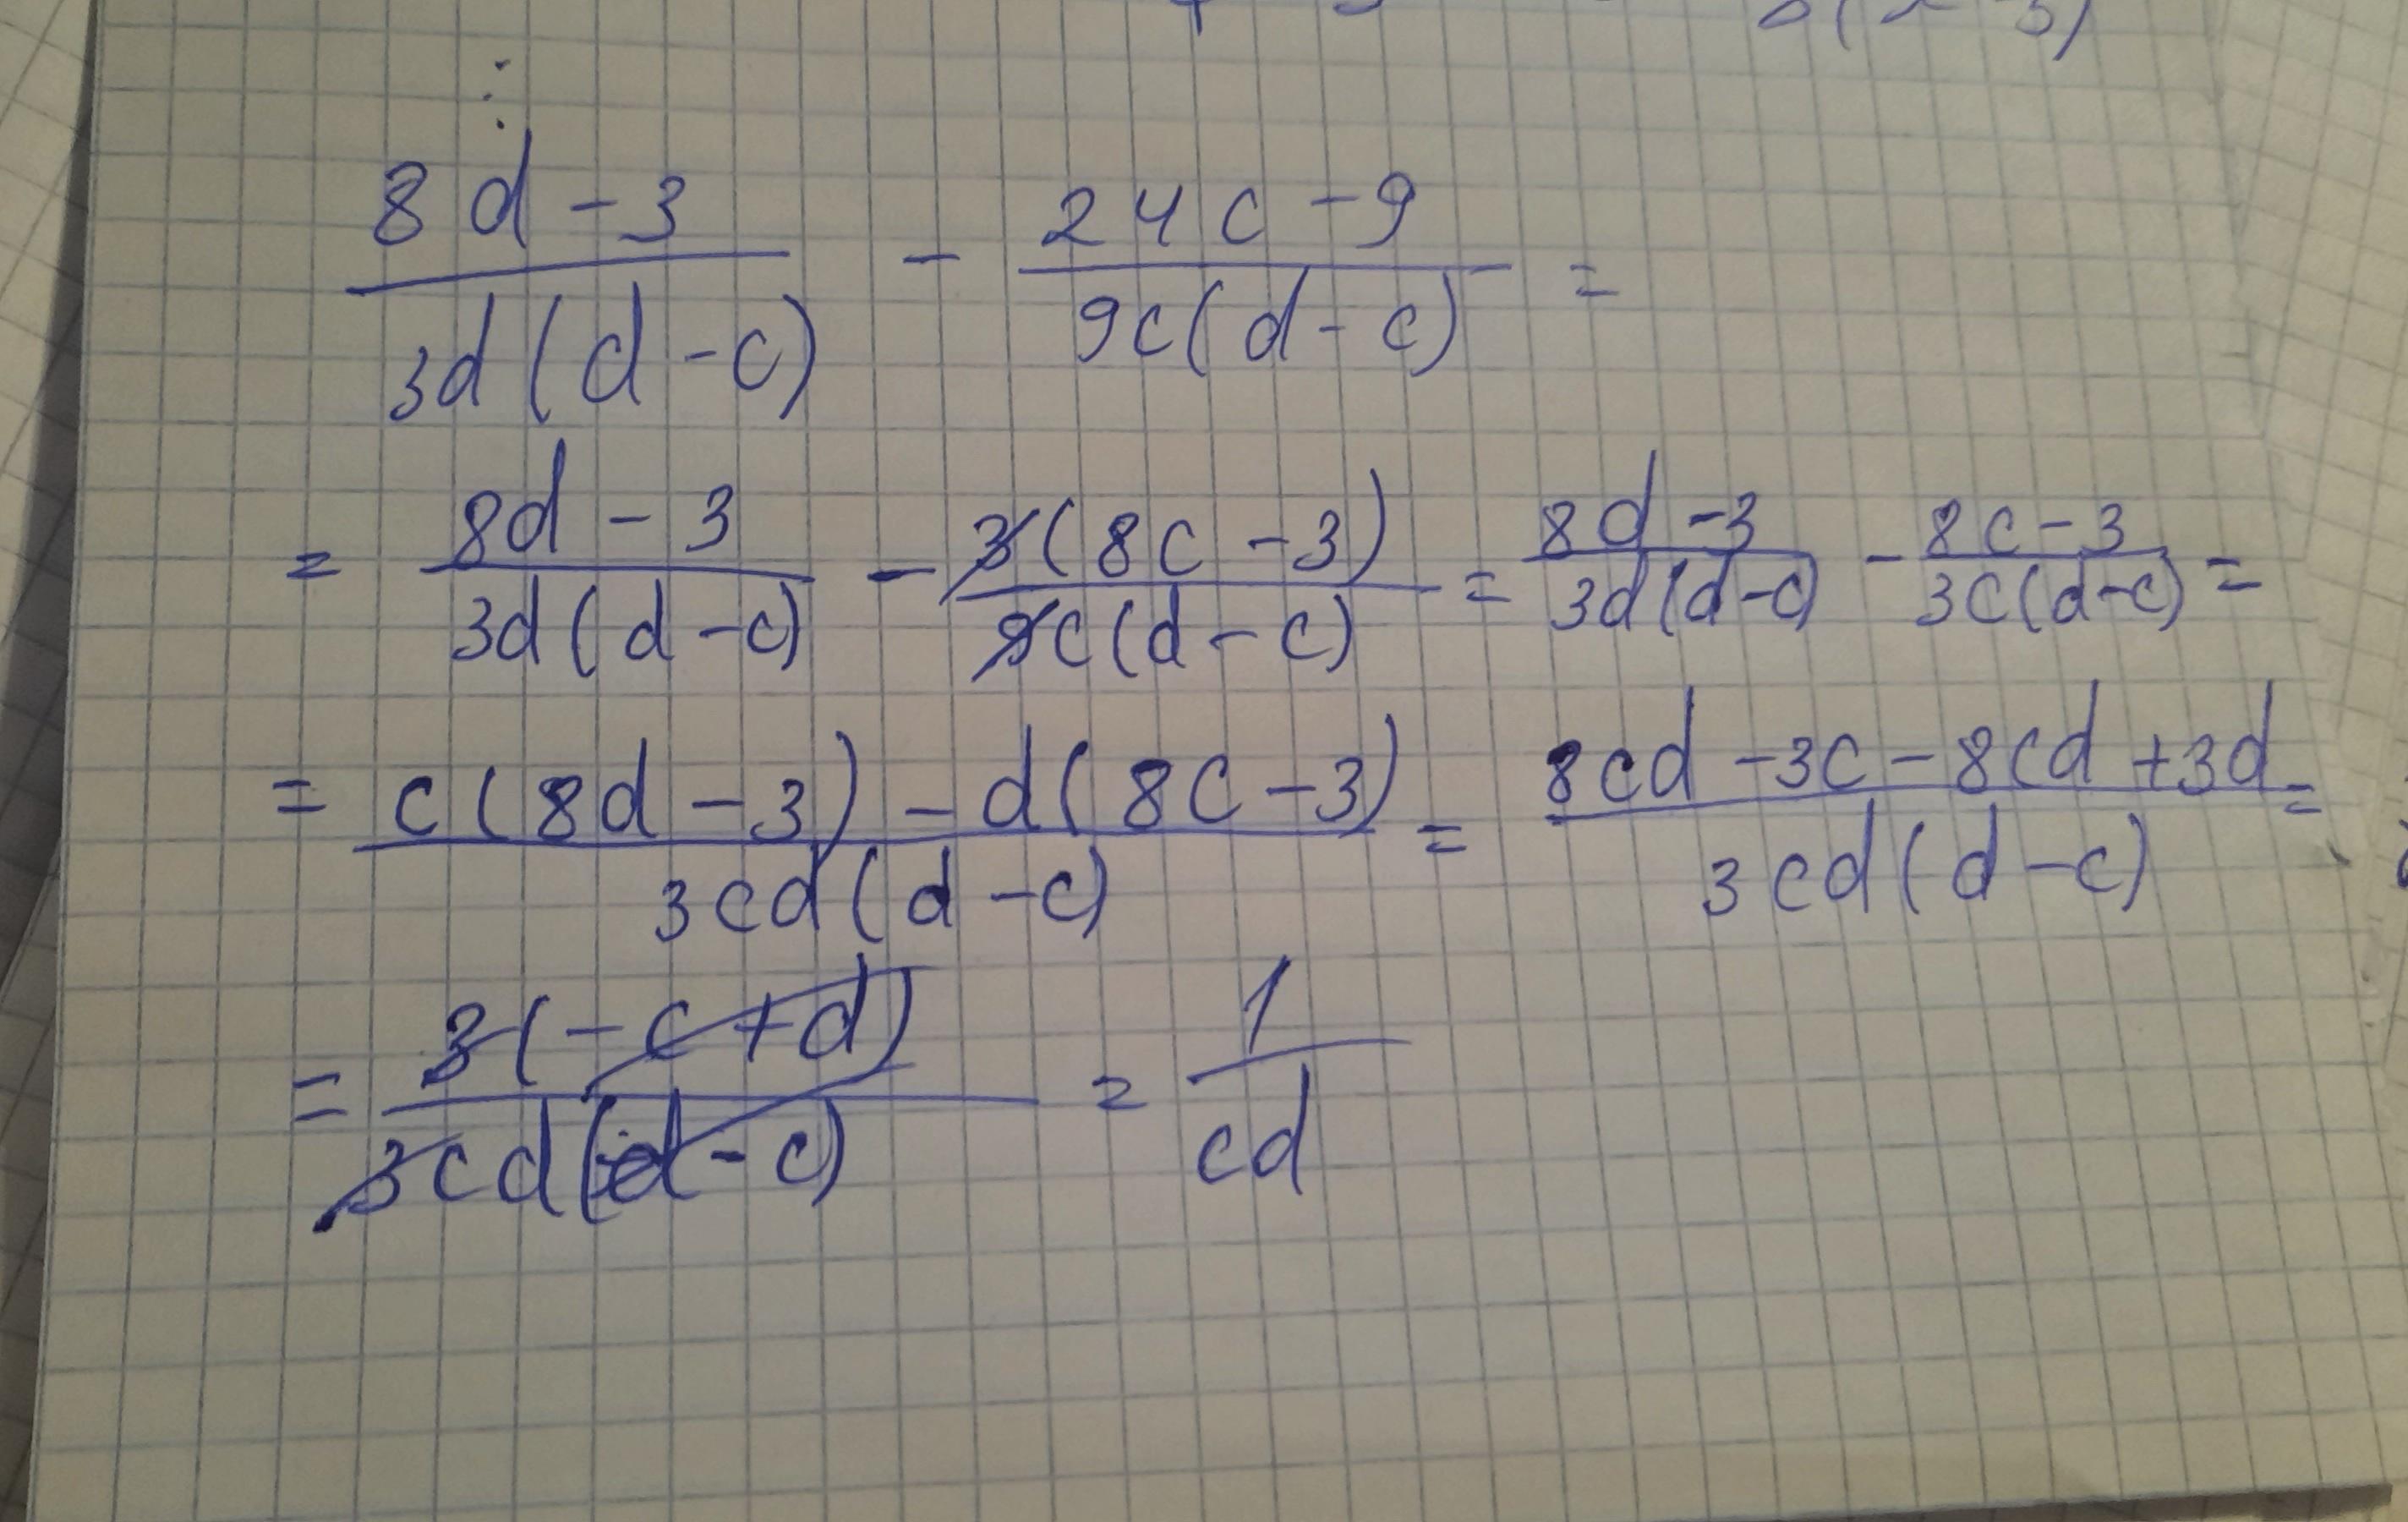 (8d - 3)/(3d(d - c)) - (24c - 9)/(9c(d - c)) =
= (8d - 3)/(3d(d - c)) - (3(8c - 3))/(9c(d - c)) = (8d - 3)/(3d(d - c)) - (8c - 3)/(3c(d - c)) =
= (c(8d - 3) - d(8c - 3))/(3cd(d - c)) = (8cd - 3c - 8cd + 3d)/(3cd(d - c)) =
= (3(-c + d))/(3cd(d - c)) = 1/(cd)